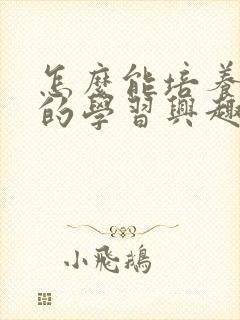 怎麼能培養
的學習興趣
小飛鵝